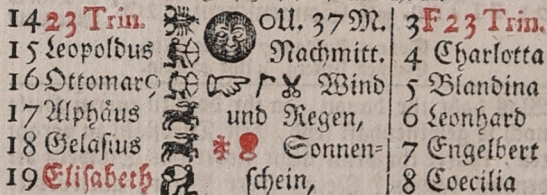 14 23 Trin. 0U. 37 M. 3 F 23 Trin.
15 Leopoldus Nachmitt. 4 Charlotta
16 Ottomarꝰ Wind 5 Blandina
17 Alphäus und Regen, 6 Leonhard
18 Gelasius Sonnen= 7 Engelbert
19 Elisabeth schein, 8 Coecilia